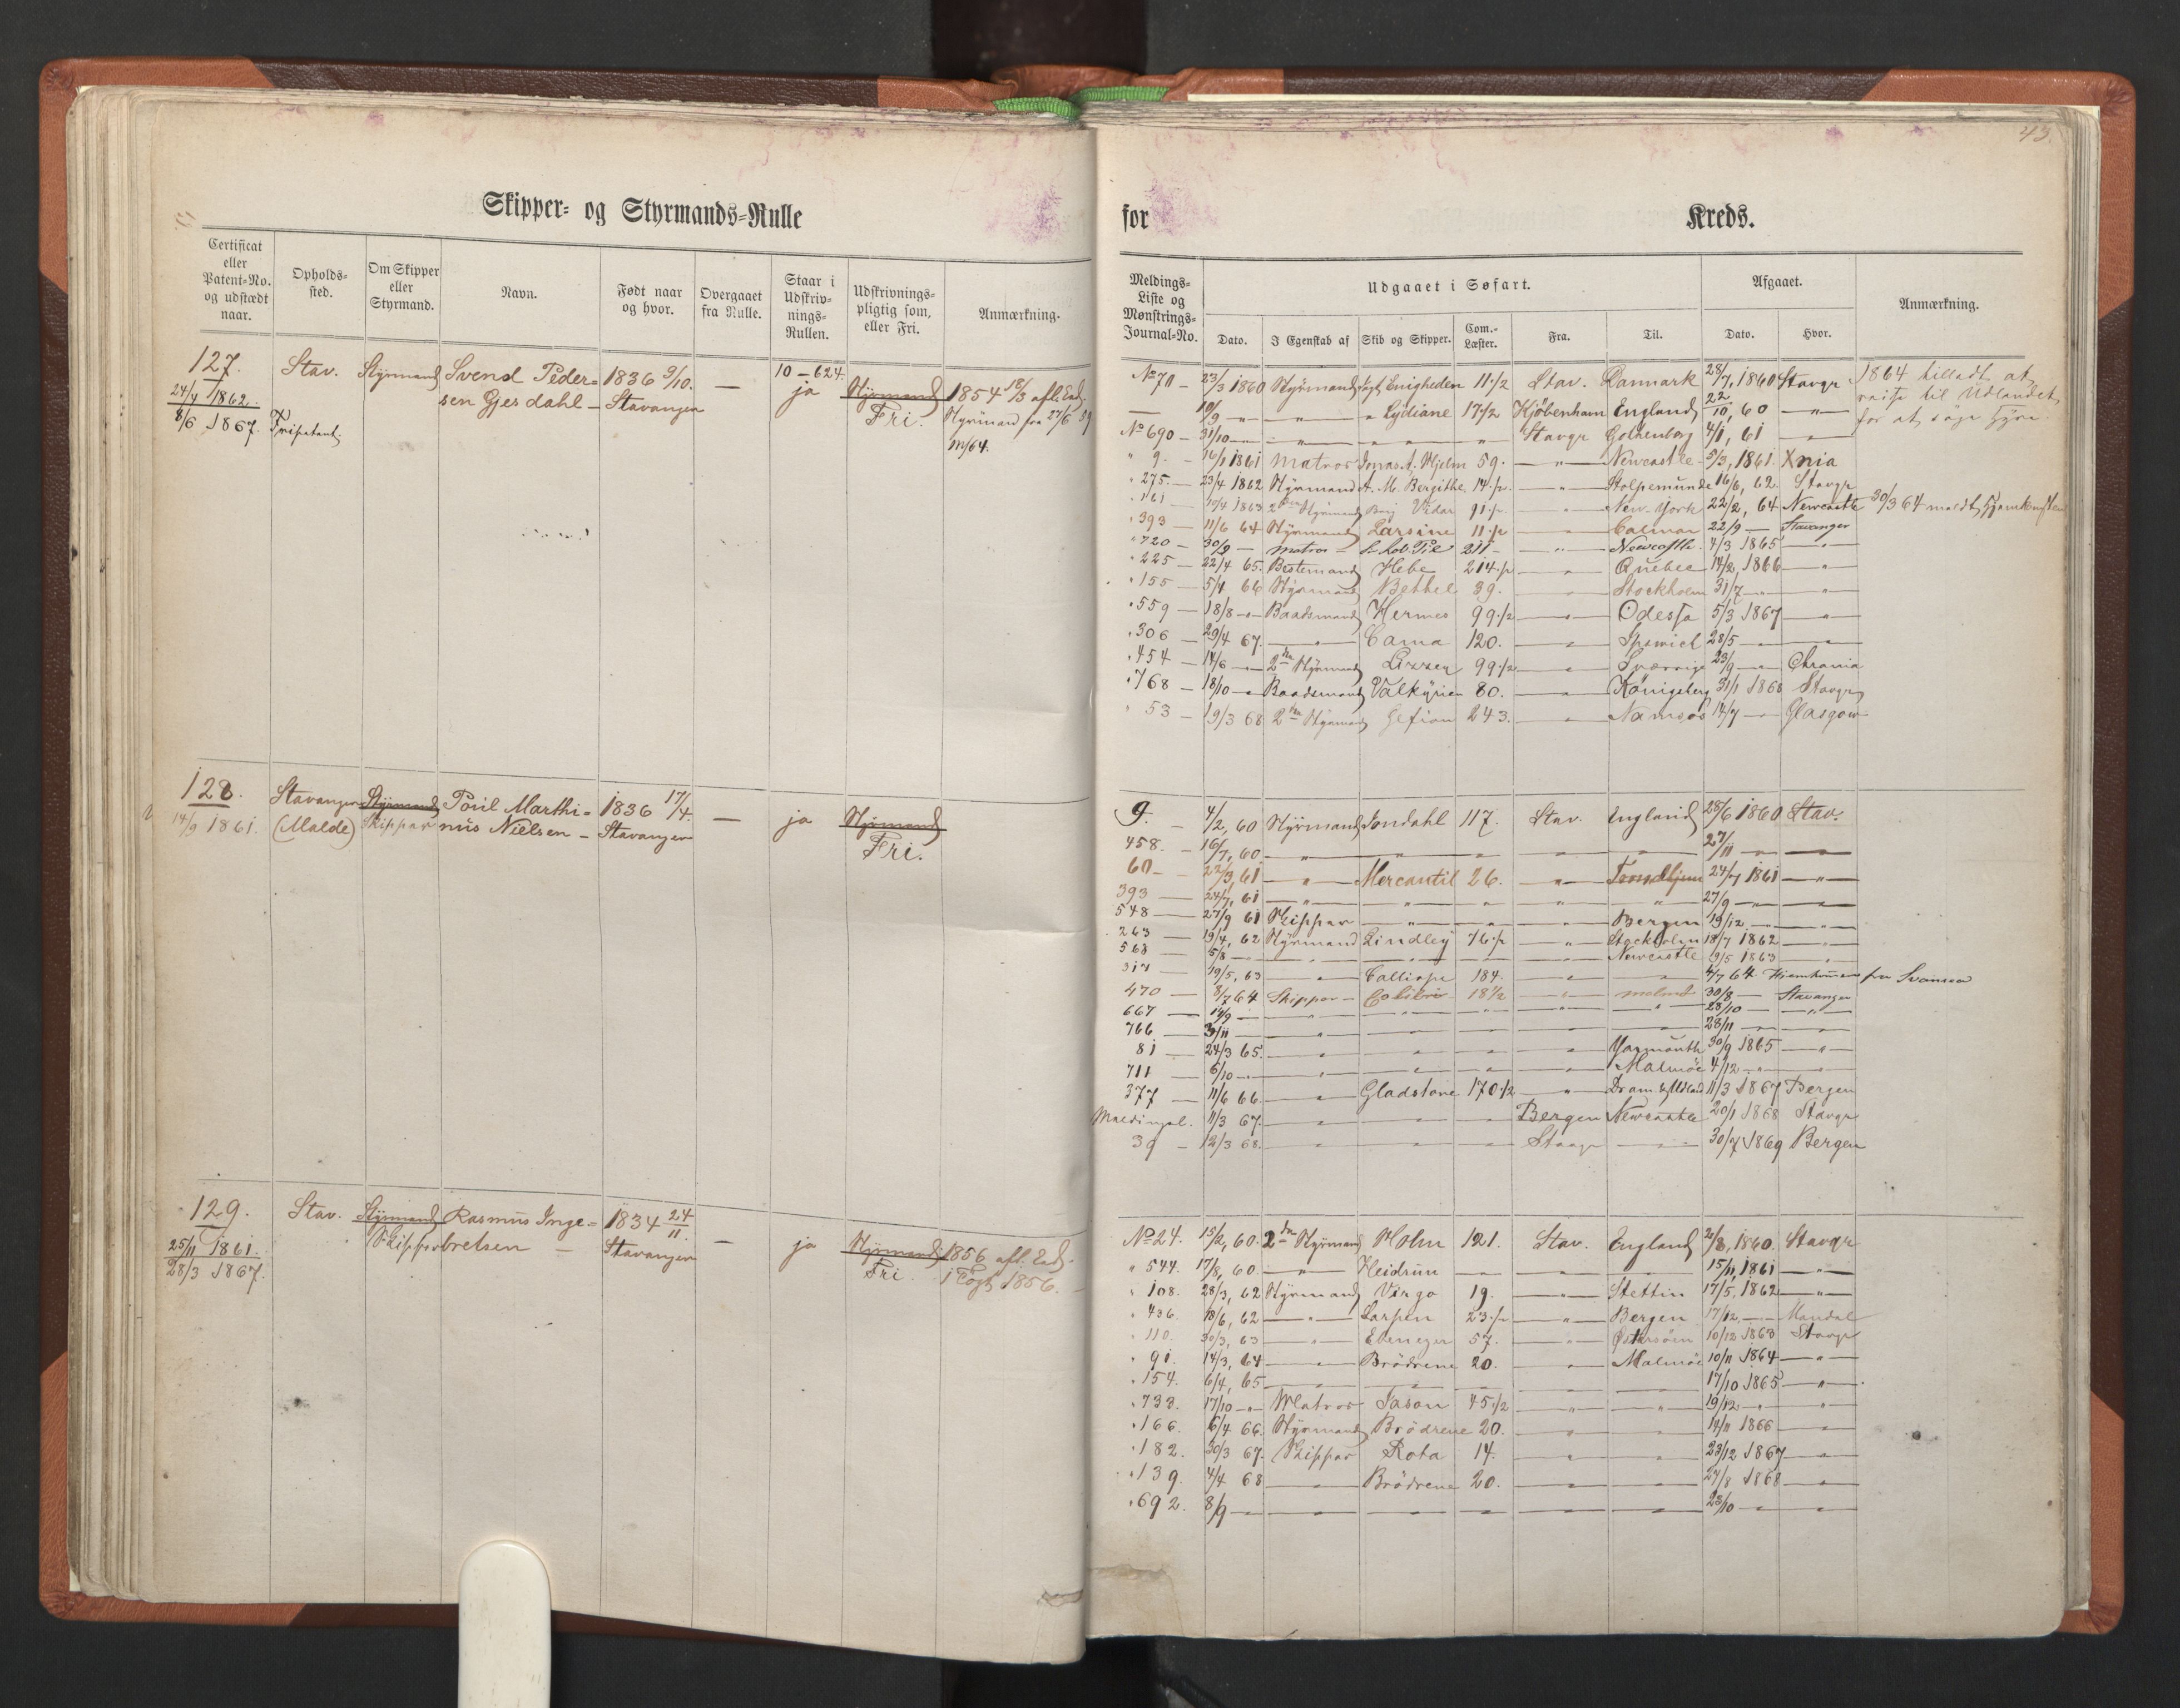 43.
Skipper- og Styrmands-Rulle
for Kreds.
Certificat eller Patent-No. og udstædt naar.
Opholds-sted.
Om Skipper eller Styrmand.
Navn.
Født naar og hvor.
Overgaaet fra Rulle.
Staar i Udskriv-nings-Rullen.
Udskrivnings-pligtig som, eller Fri.
Anmærkning.
Meldings-Liste og Mønstrings-Journal-No.
Udgaaet i Søfart.
Afgaaet.
Anmærkning.
Dato. I Egenskab af Skib og Skipper. Com.-Læster. Fra. Til. Dato. Hvor.
127. Stav. Styrmand Svend Peder= 1836 9/10. — 10-624. ja Styrmand 1854 18/3 afl. Ed.
24/4 1862. sen Gjesdahl — Stavanger Fri. Styrmand fra 27/6 59
8/6 1867. Fripatent. 11/64.
No 70 — 23/3 1860 Styrmand Jagt Enigheden 11 1/2 Stav. Danmark 28/7, 1860 Stavgr 1864 tilladt at
— 19/9 " — " — " Lydiane 17 1/2 Kjöbenhavn England 22/10, 60 — " — reise til Udlandet
for at söge Hyre
No 690 — 31/10 — " — " " " Stavgr Gothenborg 4/1, 61 — " —
" 9. — 16/1 1861 Matros Jonas A. Hjelm 59. — " — Newcastle 5/3, 1861. Xnia
" 275. — 23/4 1862 Styrmand A. M. Bergithe 14 1/2 — " — Stolpemunde 16/6, 62. Stavgr
" 161 — 19/4 1863 2den Styrmand Barj Vidar 91 1/2 — " — New-York 22/2, 64 Newcastle 30/3 64 meldt Hjemkomsten
" 393 — 11/6 64 Styrmand Larsine 11 1/2 — " — Calmar 22/9 — Stavanger
" 720 — 30/9 — Matros — 211 — " — Newcastle 4/3 1865 — " —
" 225 — 22/4 65. Bestemand Hebe 214 1/2 — " — Quebec 14/2, 1866 — " —
" 155 — 5/4 66 Styrmand Bethel 39. — " — Stockholm 31/7 — " — " —
" 559 — 18/8 — " — Baadsmand Hermes 99 1/2 — " — Odessa 5/3 1867 — " —
" 306 — 29/4 67. — " — Cama 120. — " — Ipswich 28/5 — " —
" 454 — 14/6 — " 2den Styrmand Lizzer 99 1/2 — " — Sverrige 23/9 — " — Chrania
" 768 — 18/10 — " Baadsmand Valkyrien 80. — " — Königsberg 31/1 1868 Stavgr
" 53 — 19/3 68 2den Styrmand Gefion 243. — " — Namsos 14/7 — " — Glasgow
128. Stavanger Styrmand Poul Marthi= 1836 17/4. — ja Styrmand
14/9 1861. (Malde) Skipper nus Nielsen — Stavanger Fri.
9. — 4/2, 60 Styrmand Jondahl 117. Stav. England 28/6 1860 Stav.
458. — 16/7, 60. — " — " — " — " — " — 27/11 — " —
60 — 22/3, 61 — " — Mercantil 26. — " — Trondhjem 24/7 1861 — " —
393 — 24/7, 61 — " — " — " — " — " — 27/9 — " —
548 — 27/9 61 Skipper — " — " — " — Bergen 19/12 — " —
263 — 19/4, 62 Styrmand Lindley 76 1/2 — " — Stockholm 18/7 1862 — " —
568 — 5/8 — " — " — " — " — Newcastle 9/5 1863 — " —
317 — 19/5, 63 — " — Calliope 184. — " — " — 4/7 64. Hjemkommen fra Svansea
470 — 8/7 64 Skipper — Colibri 18 1/2 — " — Malmö 30/8 — Stavanger
667 — 14/9 — " — " — " — " — " — 28/10 — " —
766 — 3/11 — " — " — " — " — " — 28/11 — " —
81 — 24/3 65. — " — " — " — " — Yarmouth 30/9 1865 — " —
711 — 6/10 — " — " — " — " — Malmöe 4/12 — " —
377 — 11/6 66. — " — Gladstone 170 1/2 — " — Dram & Udland 11/3 1867 Bergen
11/3 67. — " — " — " — Bergen Newcastle 20/1 1868 Stavgr
39 — 12/3 68. — " — " — " — Stavgr — " — 30/7 1869 Bergen
129. Stav. Styrmand Rasmus Inge= 1834 24/11. — ja Styrmand 1856 afl. Ed.
25/11 1861. Skipper bretsen — Stavanger Fri. 1 Togt 1856.
28/3 1867.
No 24. 15/2, 60. 2den Styrmand Holm 121. Stav. England 2/8, 1860. Stavgr
" 544. 17/8, 60. — " — Heidrun — " — " — 15/11, 1861 — " —
" 108. 28/3, 62 Styrmand Virgo 19. — " — Stettin 17/5. 1862 — " —
" 436. 18/6, 62 — " — Larpen 23 1/2 — " — Bergen 17/12 — " — Mandal
" 110. 30/3, 63 — " — Ebeneger 57. — " — Östersöen 10/12 1863 Stavgr
" 91. 14/3, 64 — " — Brödrene 20. — " — Malmöe 10/11 1864 — " —
" 154. 6/4, 65 — " — " — " — " — " — 17/10 1865 — " —
" 733. 17/10 — " — Matros Jason 45 1/2 — " — " — 19/12 — " —
" 166. 6/4 66. Styrmand Brödrene 20. — " — " — 14/11 1866 — " —
" 182. 30/3 67. Skipper Rota 14. — " — " — 23/12 1867 — " —
" 139. 4/4 68 — " — Brödrene 20. — " — " — 27/8 1868 — " —
" 692. 8/9 — " — " — " — " — " — 23/10 — " —